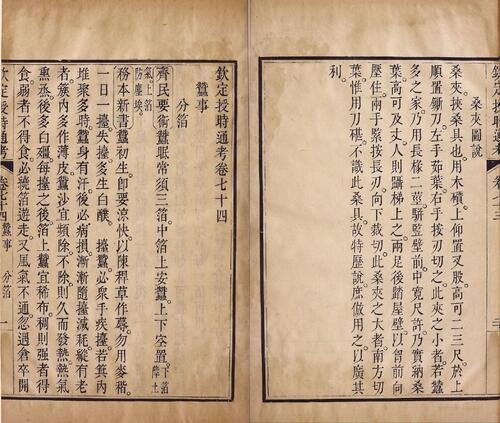 欽定授時通考
桑夾圖說
桑夾。挾桑具也。用木礩。上仰置叉股。高可二三尺。於上
順置鍘刀。左手茹葉。右手按刃切之。此夾之小者。若蠶
多之家。乃用長椽二莖。駢竪壁前。中寬尺許。乃實納桑
葉。高可及丈。人則躡梯上之。兩足後踏屋壁。以胷前向
壓住。兩手緊按長刃。向下裁切。此桑夾之大者。南方切
葉。惟用刀碪。不識此桑具。故特歷說。庶倣用之。以廣其
利。
欽定授時通考卷七十四
蠶事
分箔
齊民要術蠶眠常須三箔。中箔上安蠶。上下空置。下箔障土
氣。上箔防塵埃。
務本新書蠶初生。卽要涼快。以陳稈草作蓐。勿用麥稭。
一日一擡。失擡多生白醭。 擡蠶必衆手疾擡。若箕內
堆聚多時。蠶身有汗。後必病損。漸漸隨擡減耗。縱有老
者。簇內多作薄皮。蠶沙宜頻除。不除則久而發熱。熱氣
熏蒸。後多白殭。每擡之後。箔上蠶宜稀布。稠則强者得
食。弱者不得食。必繞箔遊走。又風氣不通。忽遇倉卒開
欽定授時通考 卷七十四 蠶事 分箔 一